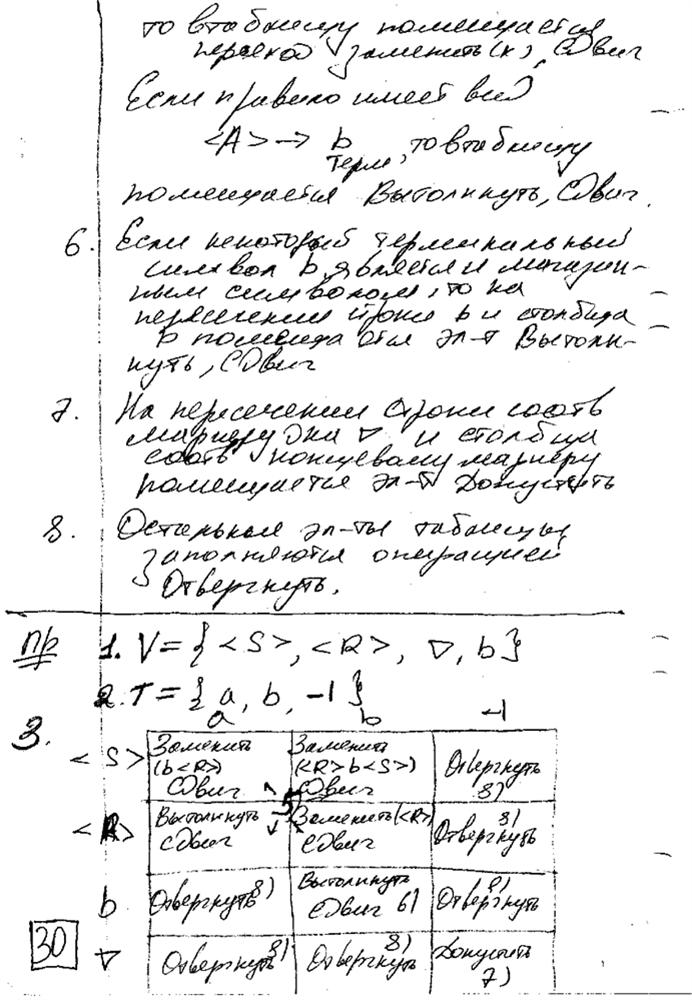 то в таблицу помещается
переход заменить(x), Сдвиг
Если правило имеет вид
<A> → b , то в таблицу
терм
помещается Вытолкнуть, Сдвиг.
6. Если некоторый терминальный
символ b является и магазин-
ным символом, то на
пересечении строки b и столбца
b помещается эл-т Вытолк-
нуть, Сдвиг
7. На пересечении строки соотв
маркеру дна ▽ и столбца
соотв концевому маркеру
помещается эл-т Допустить
8. Остальные эл-ты таблицы
заполняются операцией
Отвергнуть.
пр 1. V = { <S>, <R>, ▽, b }
2. T = { a, b, ⊣ }
3. a b ⊣
<S> Заменить (b<R>) Сдвиг Заменить (<R>b<S>) Сдвиг Отвергнуть 8)
5
<R> Вытолкнуть сдвиг Заменить(<R>) сдвиг Отвергнуть 8)
b Отвергнуть 8) Вытолкнуть Сдвиг 6) Отвергнуть 8)
▽ Отвергнуть 8) Отвергнуть 8) Допустить 7)
30